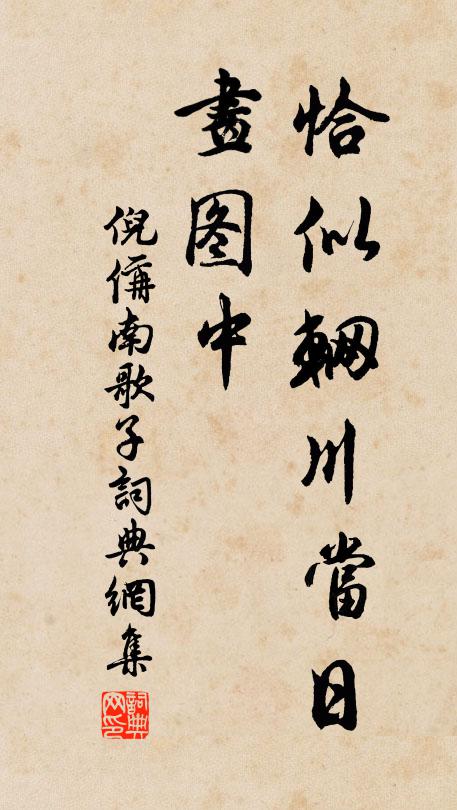 恰似輞川當日
畫图中
倪偁南歌子詞典網集
詞典网印